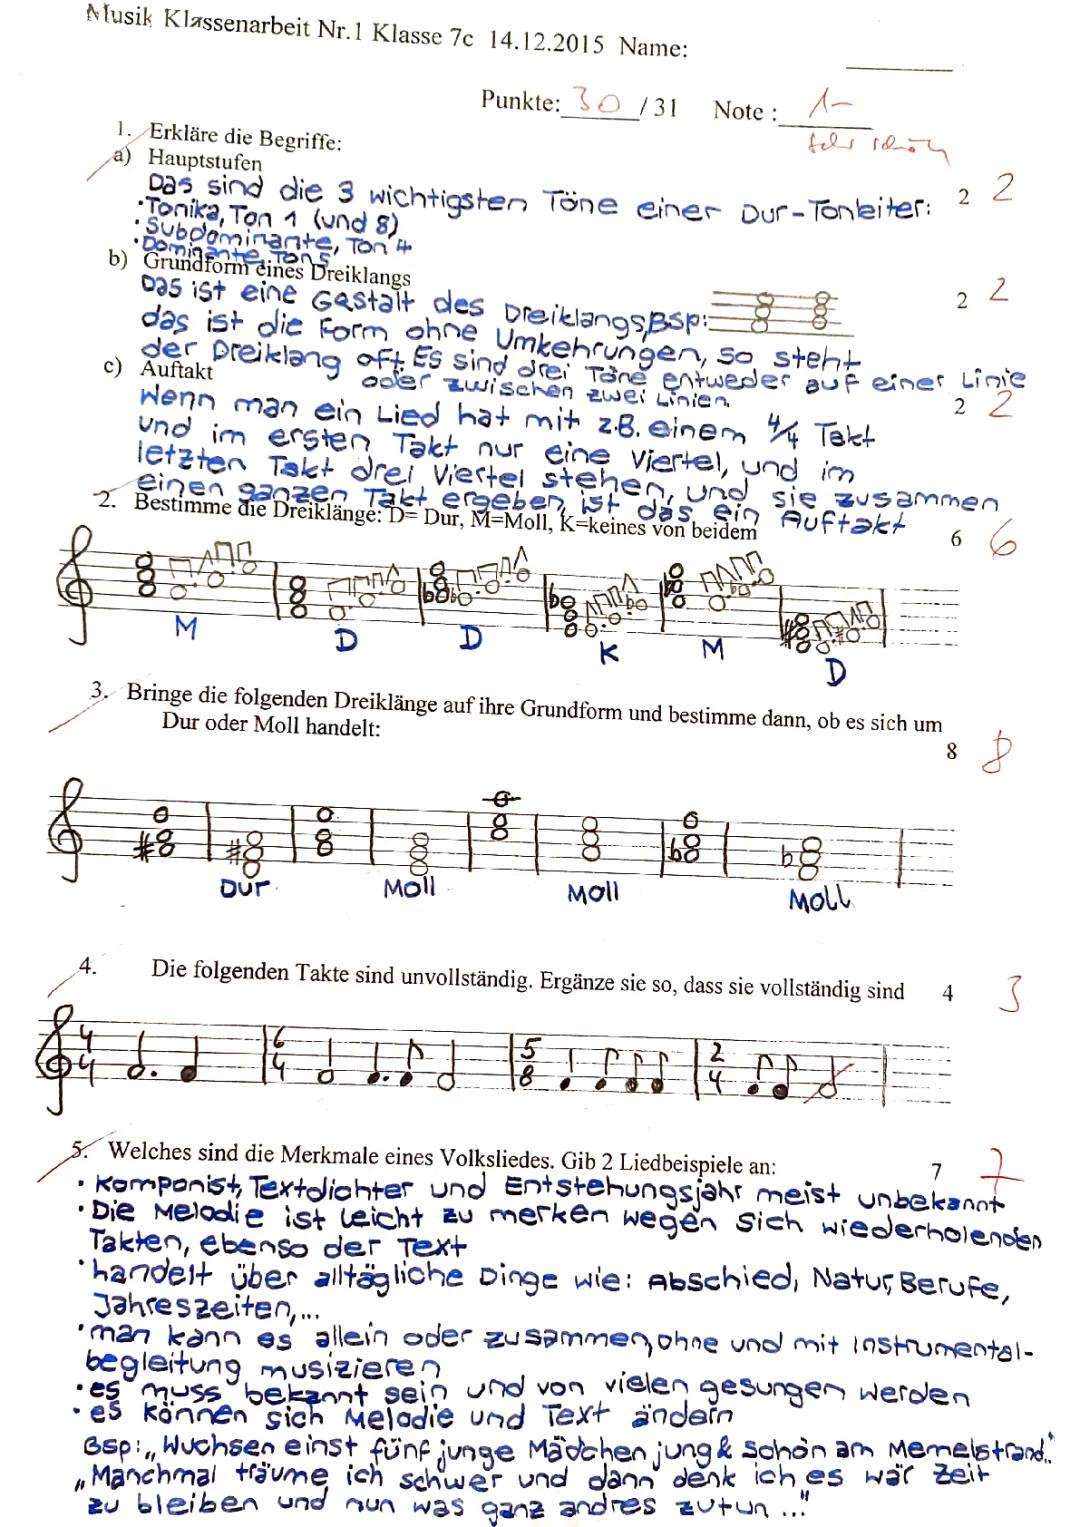 Musik Klassenarbeit Nr.1 Klasse 7c 14.12.2015 Name:
Punkte: 30 / 31 Note : 1-
sehr schön
1. Erkläre die Begriffe:
a) Hauptstufen
Das sind die 3 wichtigsten Töne einer Dur-Tonleiter: 2 2
· Tonika, Ton 1 (und 8)
· Subdominante, Ton 4
· Dominante, Ton 5
b) Grundform eines Dreiklangs
Das ist eine Gestalt des Dreiklangs, Bsp: 2 2
das ist die Form ohne Umkehrungen, so steht
der Dreiklang oft. Es sind drei Töne entweder auf einer Linie
oder zwischen zwei Linien.
c) Auftakt 2 2
Wenn man ein Lied hat mit z.B. einem 4/4 Takt
und im ersten Takt nur eine Viertel, und im
letzten Takt drei Viertel stehen, und sie zusammen
einen ganzen Takt ergeben, ist das ein Auftakt
2. Bestimme die Dreiklänge: D= Dur, M=Moll, K=keines von beidem 6 6
M D D K M D
3. Bringe die folgenden Dreiklänge auf ihre Grundform und bestimme dann, ob es sich um
Dur oder Moll handelt: 8 8
Dur Moll Moll Moll
4. Die folgenden Takte sind unvollständig. Ergänze sie so, dass sie vollständig sind 4 3
4 6 5 2
4 4 8 4
5. Welches sind die Merkmale eines Volksliedes. Gib 2 Liedbeispiele an: 7 7
· Komponist, Textdichter und Entstehungsjahr meist unbekannt
· Die Melodie ist leicht zu merken wegen sich wiederholenden
Takten, ebenso der Text
· handelt über alltägliche Dinge wie: Abschied, Natur, Berufe,
Jahreszeiten,...
· man kann es allein oder zusammen, ohne und mit Instrumental-
begleitung musizieren
· es muss bekannt sein und von vielen gesungen werden
· es können sich Melodie und Text ändern
Bsp: „Wuchsen einst fünf junge Mädchen jung & schön am Memelstrand."
„Manchmal träume ich schwer und dann denk ich es wär Zeit
zu bleiben und nun was ganz andres zutun ..."